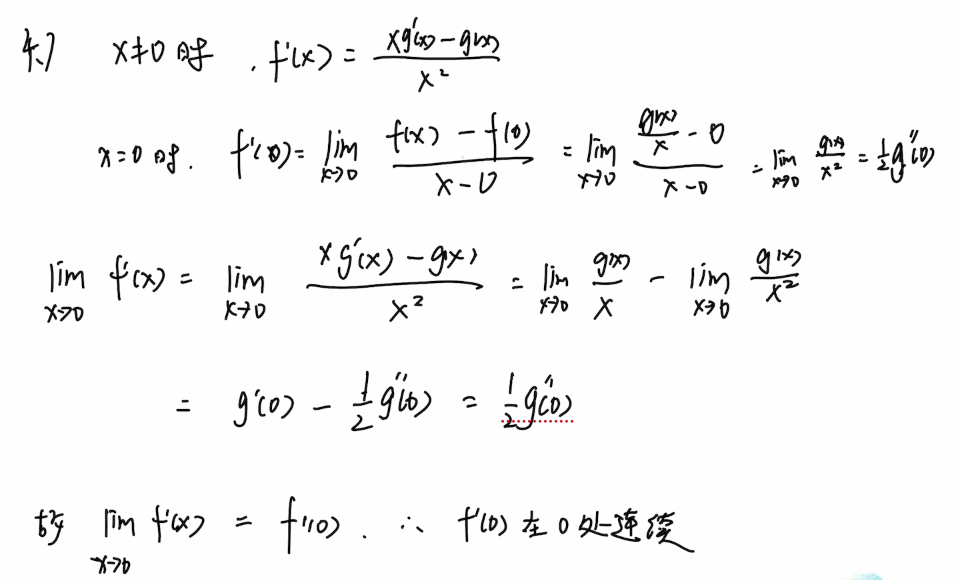 4.) x≠0 时 . f'(x) = (xg'(x) - g(x))/x²
x=0 时. f'(0) = lim_{x→0} (f(x) - f(0))/(x-0) = lim_{x→0} (g(x)/x - 0)/(x-0) = lim_{x→0} g(x)/x² = 1/2 g''(0)
lim_{x→0} f'(x) = lim_{x→0} (xg'(x) - g(x))/x² = lim_{x→0} g'(x)/x - lim_{x→0} g(x)/x²
= g'(0) - 1/2 g''(0) = 1/2 g''(0)
故 lim_{x→0} f'(x) = f'(0). ∴ f'(0) 在 0 处连续